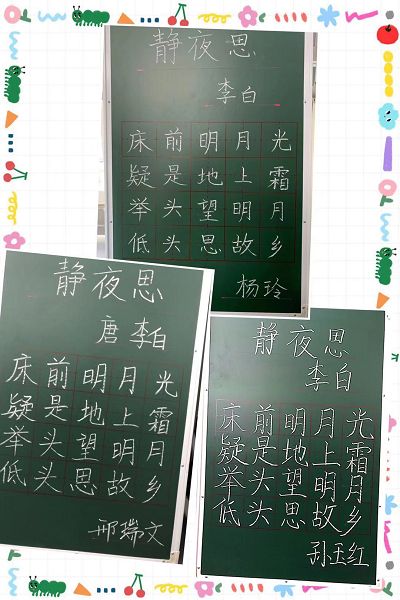 静夜思
李白
床前明月光
疑是地上霜
举头望明月
低头思故乡
杨玲
静夜思
唐李白
床前明月光
疑是地上霜
举头望明月
低头思故乡
邢瑞文
静夜思
李白
床前明月光
疑是地上霜
举头望明月
低头思故乡
孙玉红